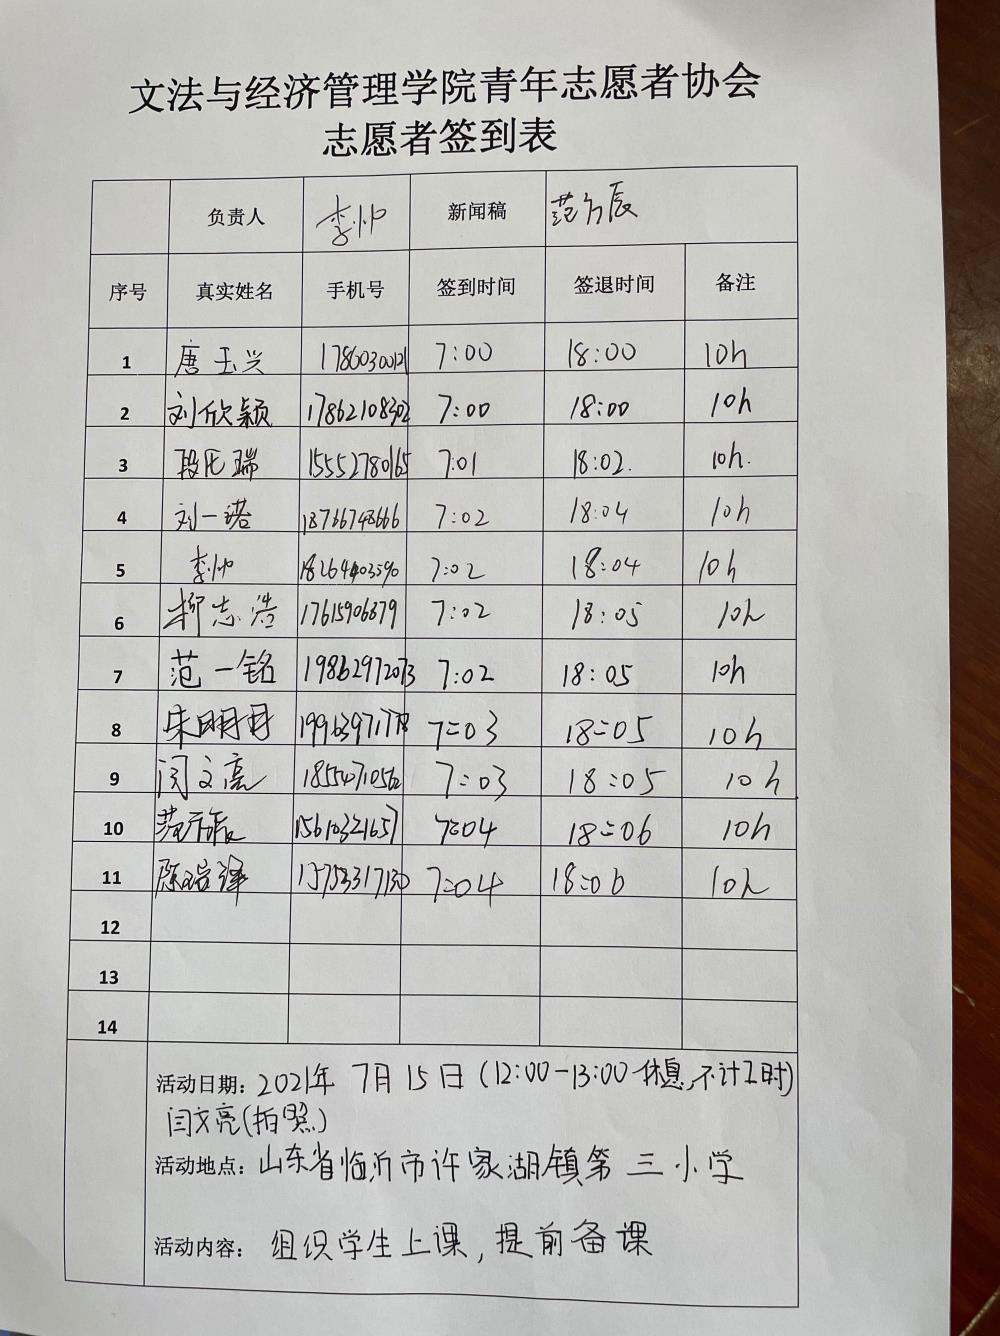 文法与经济管理学院青年志愿者协会
志愿者签到表
负责人 李帅 新闻稿 范方辰
序号 真实姓名 手机号 签到时间 签退时间 备注
1 唐玉兴 17860300121 7:00 18:00 10h
2 刘欣颖 17862108302 7:00 18:00 10h
3 段 瑞 15552780165 7:01 18:02. 10h.
4 刘一诺 18766748666 7:02 18:04 10h
5 李帅 18264403590 7:02 18:04 10h
6 柳志浩 17615906879 7:02 18:05 10h
7 范一铭 19862972073 7:02 18:05 10h
8 朱明月 7:03 18:05 10h
9 闫文亮 18554710562 7:03 18:05 10h
10 范方辰 15610321657 7:04 18:06 10h
11 陈瑞泽 15753317130 7:04 18:06 10h
12
13
14
活动日期: 2021年 7月15日(12:00-13:00休息,不计工时)
闫文亮(拍照)
活动地点: 山东省临沂市许家湖镇第三小学
活动内容: 组织学生上课,提前备课